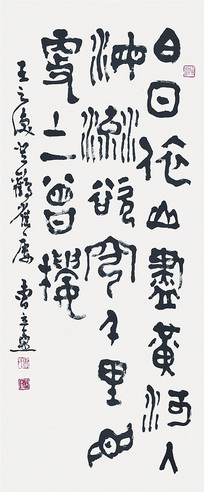 白日依山盡黃河入
海流欲窮千里目
更上一層樓
王之渙登鸛雀樓 曹立庵